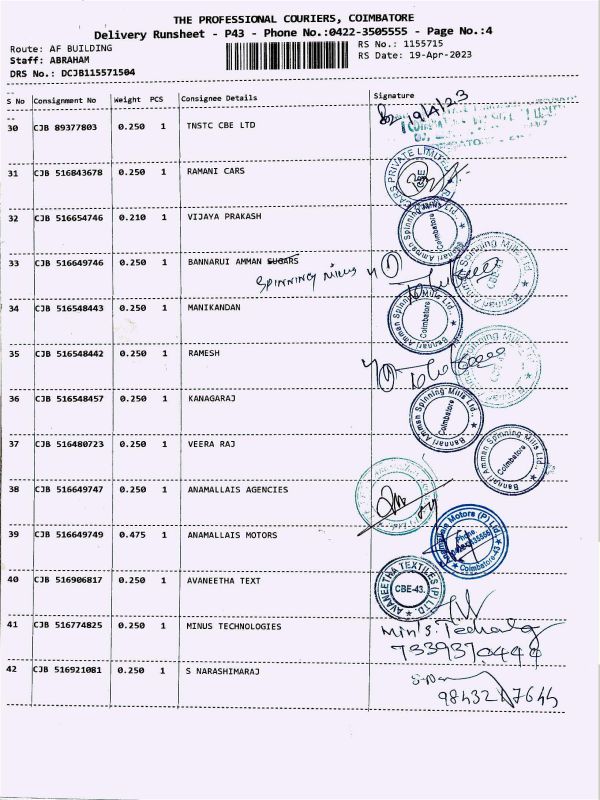 THE PROFESSIONAL COURIERS, COIMBATORE
Delivery Runsheet - P43 - Phone No.:0422-3505555 - Page No.:4
Route: AF BUILDING
Staff: ABRAHAM
DRS No.: DCJB115571504
RS No.: 1155715
RS Date: 19-Apr-2023
S No Consignment No Weight PCS Consignee Details Signature
19/4/23
30 CJB 89377803 0.250 1 TNSTC CBE LTD
31 CJB 516843678 0.250 1 RAMANI CARS
CARS PRIVATE LIMITED
CBE
32 CJB 516654746 0.210 1 VIJAYA PRAKASH
Bannari Amman Spinning Mills Ltd.,
Coimbatore
33 CJB 516649746 0.250 1 BANNARUI AMMAN SUGARS
SPINNING MILLS
Spinning Mills Ltd
CBE
34 CJB 516548443 0.250 1 MANIKANDAN
Bannari Amman Spinning Mills Ltd.,
Coimbatore
35 CJB 516548442 0.250 1 RAMESH
Spinning Mills
36 CJB 516548457 0.250 1 KANAGARAJ
Bannari Amman Spinning Mills Ltd.,
Coimbatore
37 CJB 516480723 0.250 1 VEERA RAJ
Bannari Amman Spinning Mills Ltd.,
Coimbatore
38 CJB 516649747 0.250 1 ANAMALLAIS AGENCIES
39 CJB 516649749 0.475 1 ANAMALLAIS MOTORS
Motors (P) Ltd.
Phone
Coimbatore-43
40 CJB 516906817 0.250 1 AVANEETHA TEXT
AVANEETHA TEXTILES (P) LTD.
CBE-43.
41 CJB 516774825 1 0.250 MINUS TECHNOLOGIES
7339370444
42 CJB 516921081 0.250 1 S NARASHIMARAJ